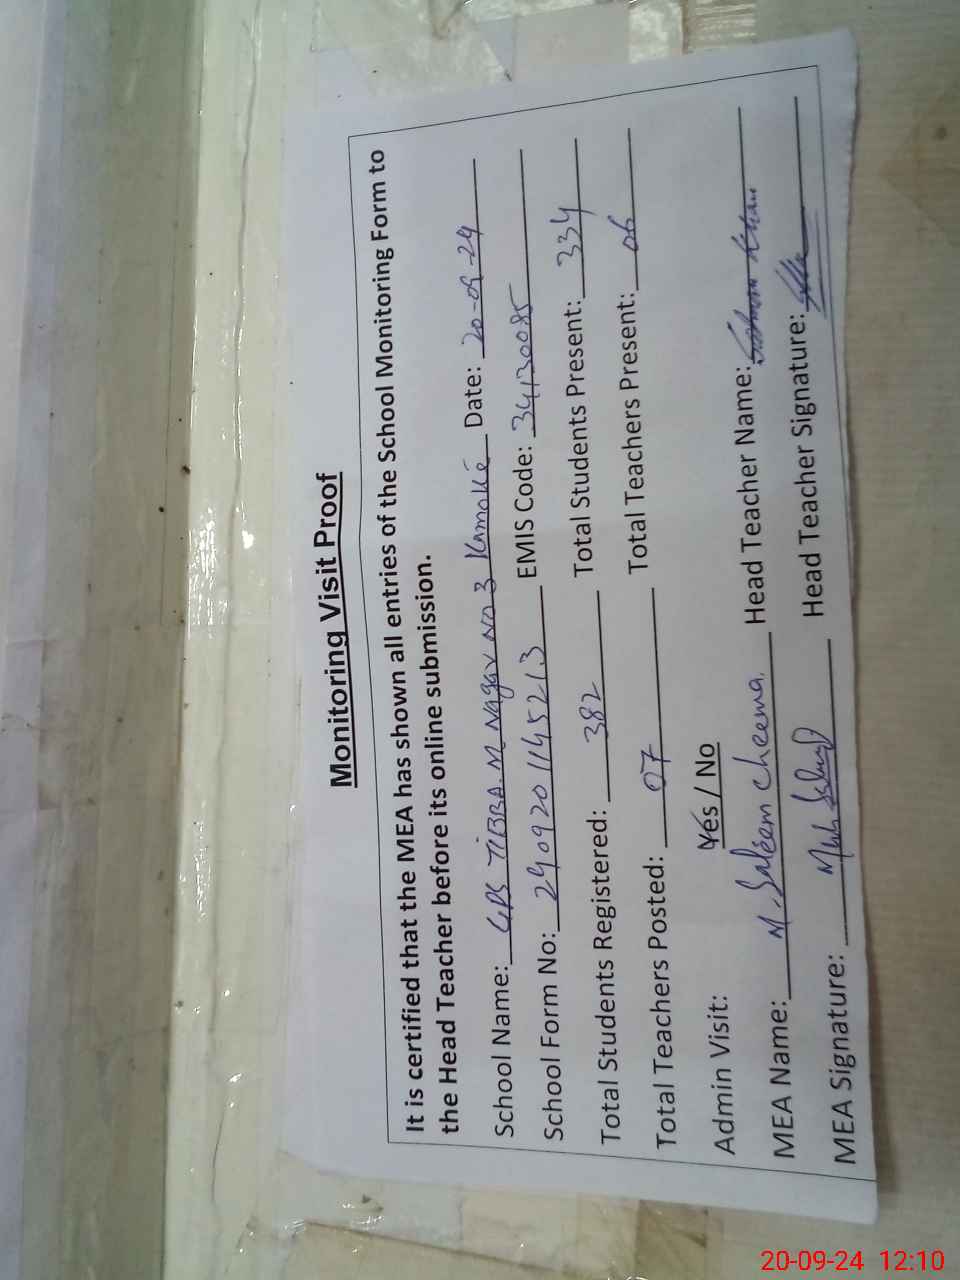 Monitoring Visit Proof
It is certified that the MEA has shown all entries of the School Monitoring Form to
the Head Teacher before its online submission.
School Name: GPS TIBBA M Nagar No 3 Kamoke Date: 20-09-24
School Form No: 2409201145213 EMIS Code: 34130085
Total Students Registered: 382 Total Students Present: 334
Total Teachers Posted: 07 Total Teachers Present: 06
Admin Visit: Yes / No
MEA Name: M. Saleem Cheema Head Teacher Name: Khan
MEA Signature: Head Teacher Signature:
20-09-24 12:10